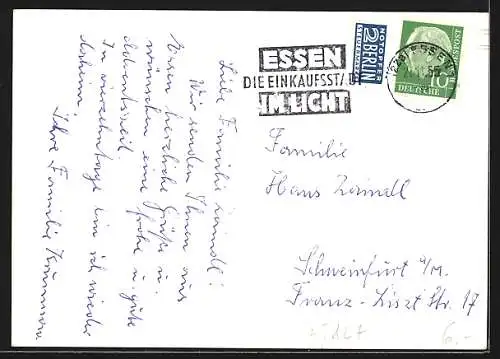 Liebe Familie Zaindl!
Wir senden Ihnen aus
Essen herzliche Grüße u.
wünschen eine frohe u. gute
Adventszeit.
In vierzehn Tage bin ich wieder
daheim.
Ihre Familie
ESSEN
DIE EINKAUFSSTADT
IM LICHT
NOTOPFER
2 BERLIN
STEUERMARKE
ESSEN
10
DEUTSCHE
BUNDESPOST
Familie
Hans Zaindl
Schweinfurt a/M.
Franz-Liszt Str. 17
6.-